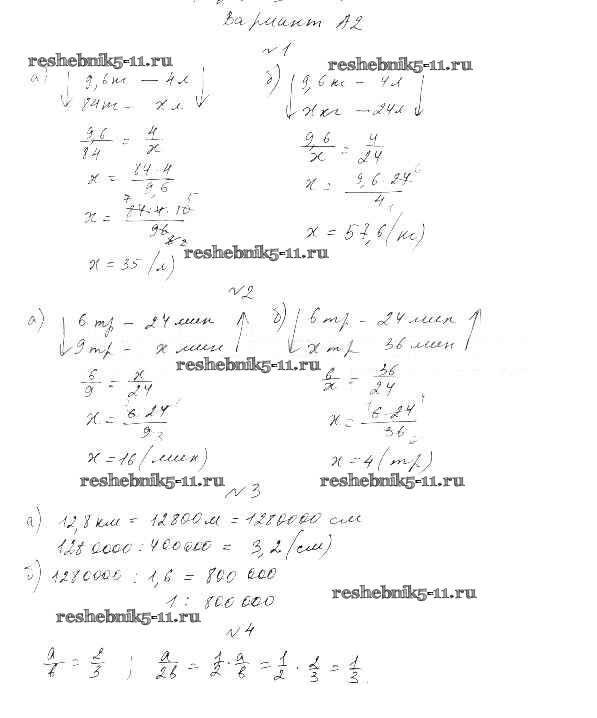 Вариант А2
№1
reshebnik5-11.ru
reshebnik5-11.ru
а) ↓ 9,6 кг — 4 л ↓
84 кг — x л
9,6/84 = 4/x
x = 84·4/9,6
x = 84·4·10/96
x = 35 (л)
б) ↓ 9,6 кг — 4 л ↓
x кг — 24 л
9,6/x = 4/24
x = 9,6·24/4
x = 57,6 (кг)
reshebnik5-11.ru
№2
а) ↓ 6 тр — 24 мин ↑
9 тр — x мин
6/9 = x/24
x = 6·24/9
x = 16 (мин)
б) ↓ 6 тр — 24 мин ↑
x тр 36 мин
6/x = 36/24
x = 6·24/36
x = 4 (тр)
reshebnik5-11.ru
reshebnik5-11.ru
reshebnik5-11.ru
№3
а) 12,8 км = 12800 м = 1280000 см
1280000 : 400000 = 3,2 (см)
б) 1280000 : 1,6 = 800 000
1 : 800 000
reshebnik5-11.ru
reshebnik5-11.ru
№4
a/b = 2/3 ; a/2b = 1/2 · a/b = 1/2 · 2/3 = 1/3.